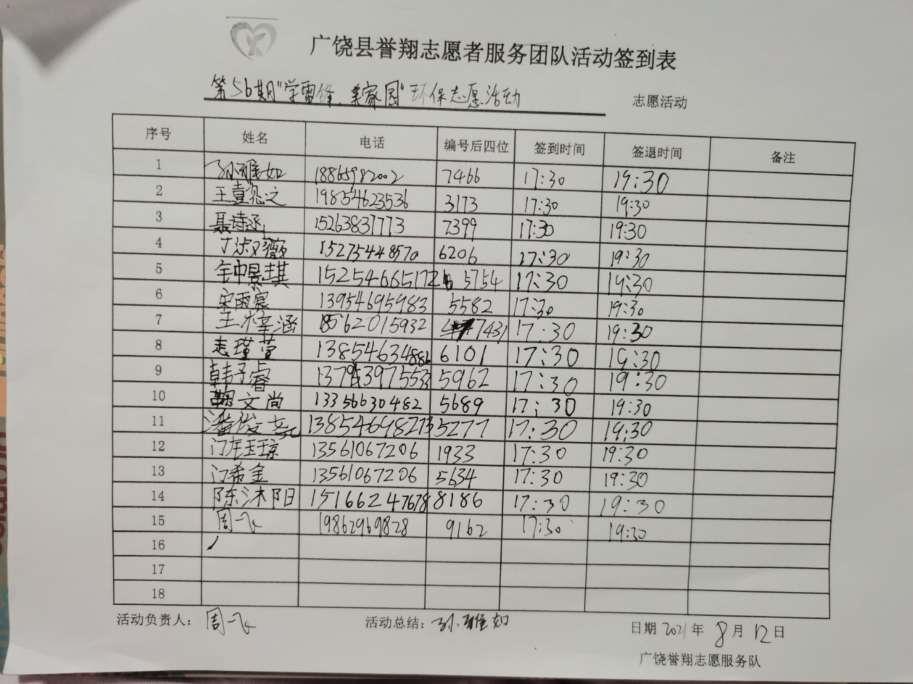 广饶县誉翔志愿者服务团队活动签到表
第56期"学雷锋、美家园"环保志愿活动 志愿活动
序号 姓名 电话 编号后四位 签到时间 签退时间 备注
1 孙雅如 18865982002 7466 17:30 19:30
2 王 之 19854623536 3173 17:30 19:30
3 聂诗涵 15263831773 7399 17:30 19:30
4 15275448570 6206 17:30 19:30
5 15254665172 5754 17:30 19:30
6 宋雨宸 13954695983 5582 17:30 19:30
7 王梓涵 18562015932 7431 17:30 19:30
8 瑾萱 13854634886 6101 17:30 19:30
9 韩子睿 5962 17:30 19:30
10 文尚 13356630482 5689 17:30 19:30
11 5277 17:30 19:30
12 13561067206 1933 17:30 19:30
13 门希金 13561067206 5634 17:30 19:30
14 陈沐阳 15166247678 8186 17:30 19:30
15 周飞 19862969828 9162 17:30 19:30
16
17
18
活动负责人: 周飞 活动总结: 孙雅如 日期 2021年 8月 12日
广饶誉翔志愿服务队